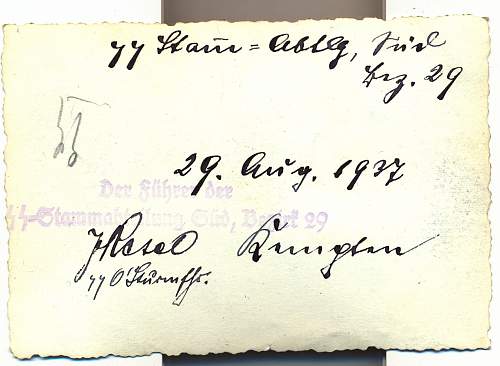 SS Stam̄=Abtlg, Süd
Bez. 29
29. Aug. 1937
Der Führer der
SS-Stammabteilung Süd, Bezirk 29
Kempten
SS O'Sturmfhr.